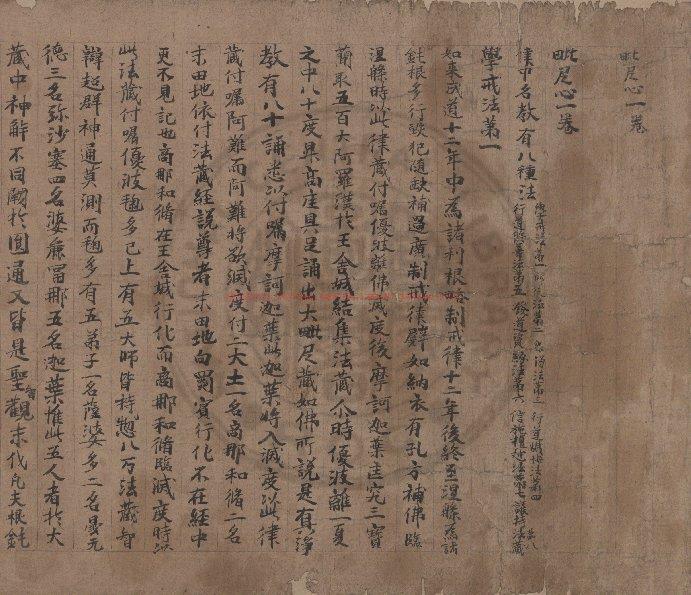 毗尼心一卷
毗尼心一卷
律中名教有八種法
學戒法第一
如來成道十二年中為諸利根略制戒律十二年後終至涅縣為諸
鈍根多行毀犯隨缺補過廣制戒律譬如納衣有孔方補佛臨
涅縣時以此律藏付囑優波離佛滅度後摩訶迦葉
簡取五百大阿羅漢於王舍城結集法藏尒時優波離一夏
之中八十度昇高座具足誦出大毗尼藏如佛所說是有
教有八十誦悉以付囑摩訶迦葉此迦葉將入滅度以此律
藏付囑阿難而阿難將欲滅度付二大士一名商那和脩二名
末田地依付法藏經說尊者末田地向罽賓行化不在經中
更不見記也商那和脩在王舍城行化而商那和脩臨滅度時以
此法藏付囑優波毱多已上有五大師皆持惣八万法藏智
辯超群神通莫測而毱多有五弟子一名薩婆多二名曇无
德三名弥沙塞四名婆麁冨那五名迦葉惟此五人者於大
藏中神解不同闕於圓通又皆是聖觀末代凡夫根鈍